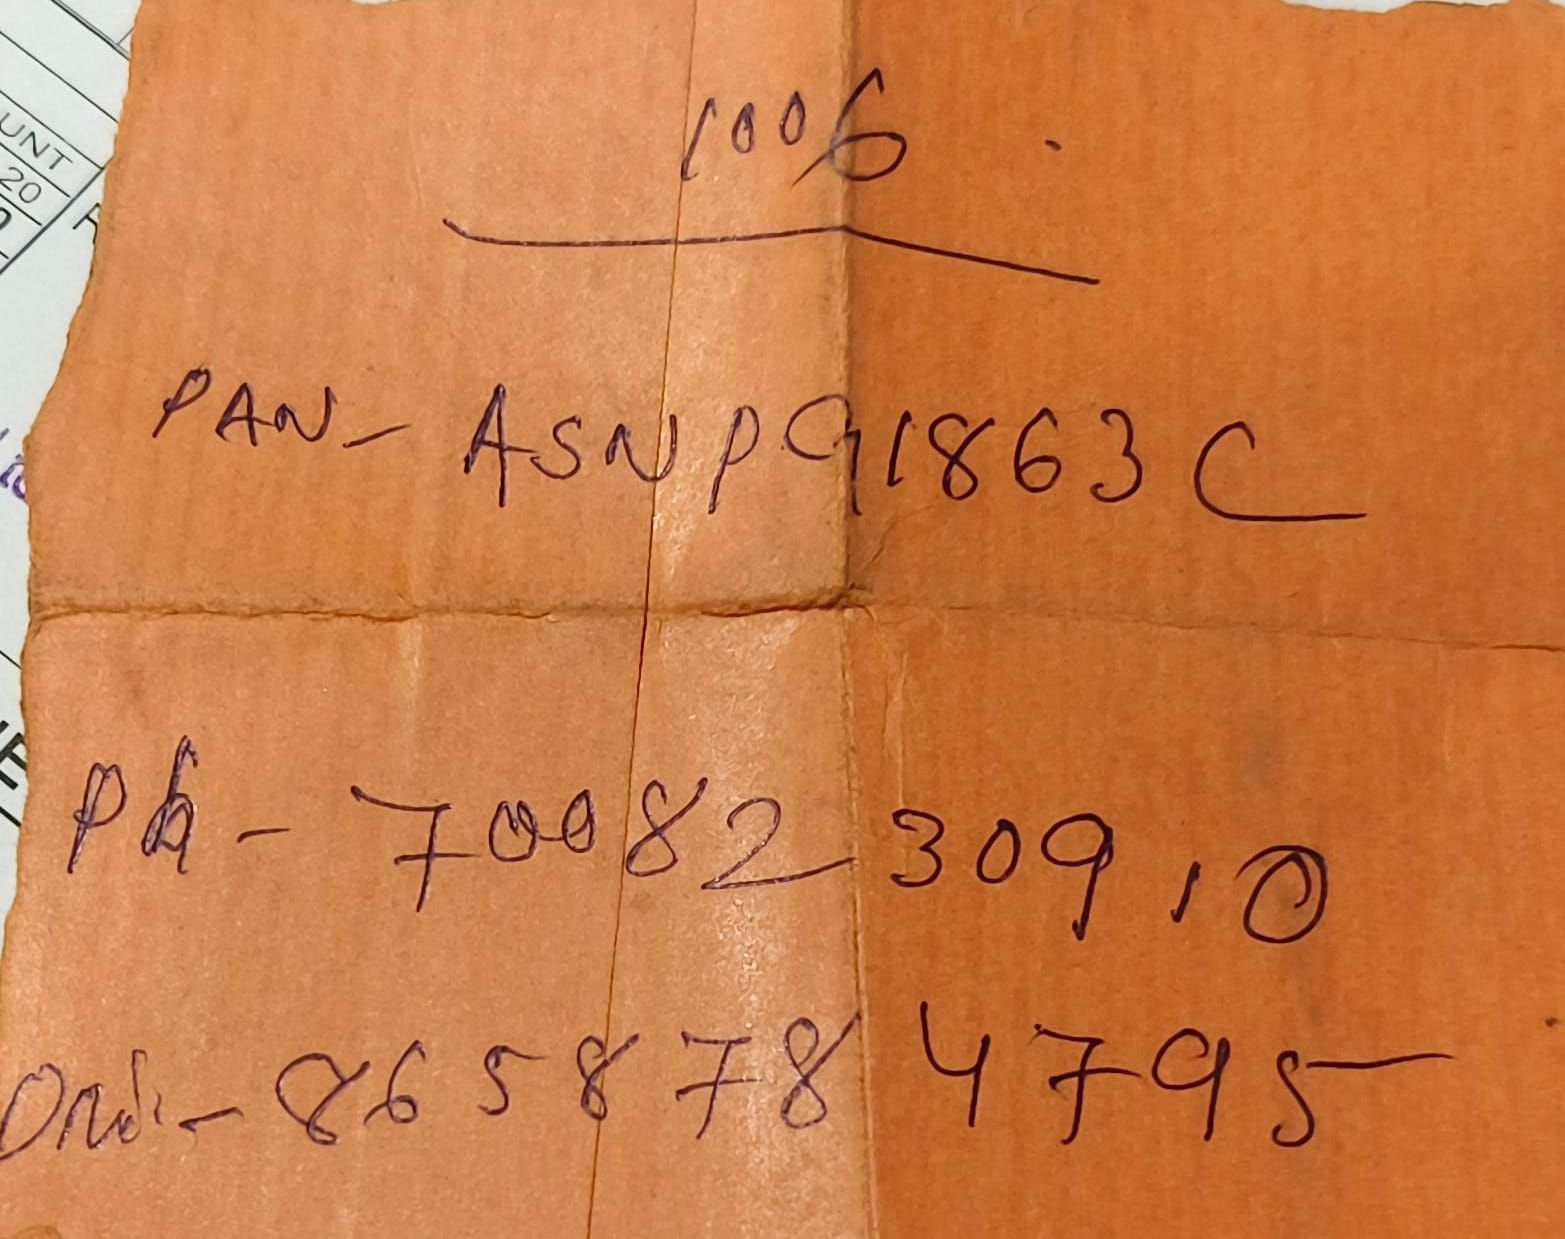 1006
PAN- ASNPG1863C
Ph- 7008230910
8658784795
UNT
20